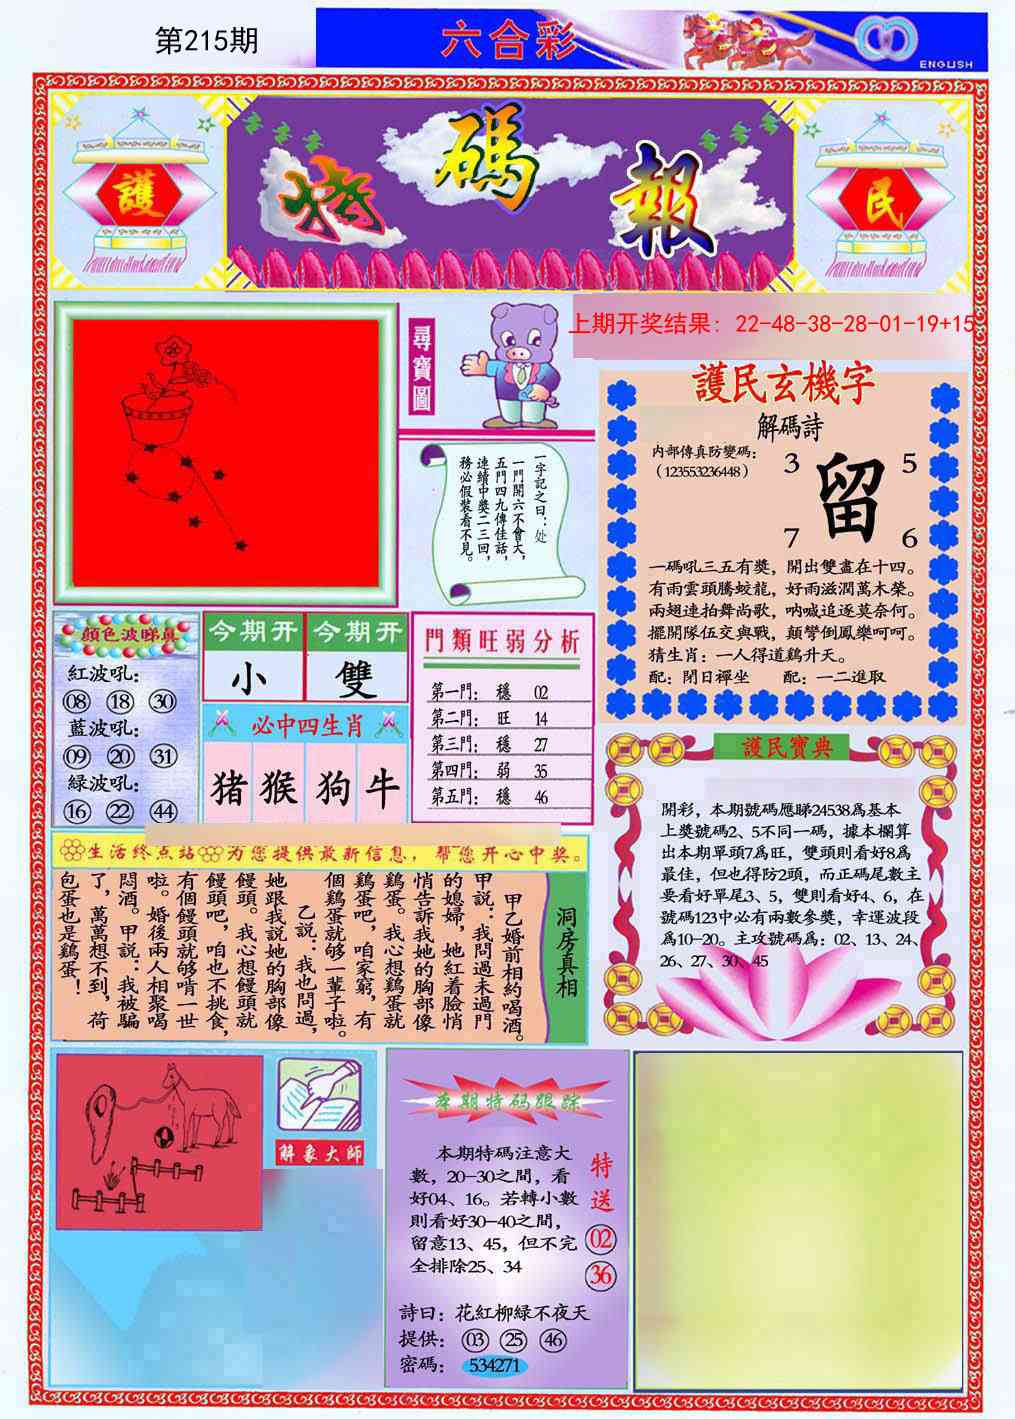 第215期
六合彩
ENGLISH
護
特碼報
民
尋寶圖
上期开奖结果：22-48-38-28-01-19+15
一字記之曰：处
一門開六不會大，
五門四九傳佳話，
連續中獎二三回，
務必假裝看不見。
護民玄機字
解碼詩
内部傳真防變碼：
（123553236448）
3 5
留
7 6
一碼吼三五有獎，開出雙盡在十四。
有雨雲頭騰蛟龍，好雨滋潤萬木榮。
兩翅連拍舞尚歌，吶喊追逐莫奈何。
擺開隊伍交與戰，顛彎倒鳳樂呵呵。
猜生肖：一人得道鷄升天。
配：閉日禪坐 配：一二進取
顔色波睇真
紅波吼：
08 18 30
藍波吼：
09 20 31
綠波吼：
16 22 44
今期开 今期开
小 雙
必中四生肖
猪 猴 狗 牛
門類旺弱分析
第一門： 穩 02
第二門： 旺 14
第三門： 穩 27
第四門： 弱 35
第五門： 穩 46
護民寶典
開彩，本期號碼應睇24538爲基本
上獎號碼2、5不同一碼，據本欄算
出本期單頭7爲旺，雙頭則看好8爲
最佳，但也得防2頭，而正碼尾數主
要看好單尾3、5，雙則看好4、6，在
號碼123中必有兩數參獎，幸運波段
爲10-20。主攻號碼爲：02、13、24、
26、27、30、45
生活终点站 为您提供最新信息，帮您开心中奖。
洞房真相
甲乙婚前相約喝酒。
甲説：我問過未過門
的媳婦，她紅着臉悄
悄告訴我她的胸部像
鷄蛋。我心想鷄蛋就
鷄蛋吧，咱家窮，有
個鷄蛋就够一輩子啦。
乙説：我也問過，
她跟我説她的胸部像
饅頭。我心想饅頭就
饅頭吧，咱也不挑食，
有個饅頭就够啃一世
啦。婚後兩人相聚喝
悶酒。甲説：我被騙
了，萬萬想不到，荷
包蛋也是鷄蛋！
解象大師
本期特码跟踪
本期特碼注意大
數，20-30之間，看
好04、16。若轉小數
則看好30-40之間，
留意13、45，但不完
全排除25、34
特送
02
36
詩曰：花紅柳綠不夜天
提供： 03 25 46
密碼： 534271